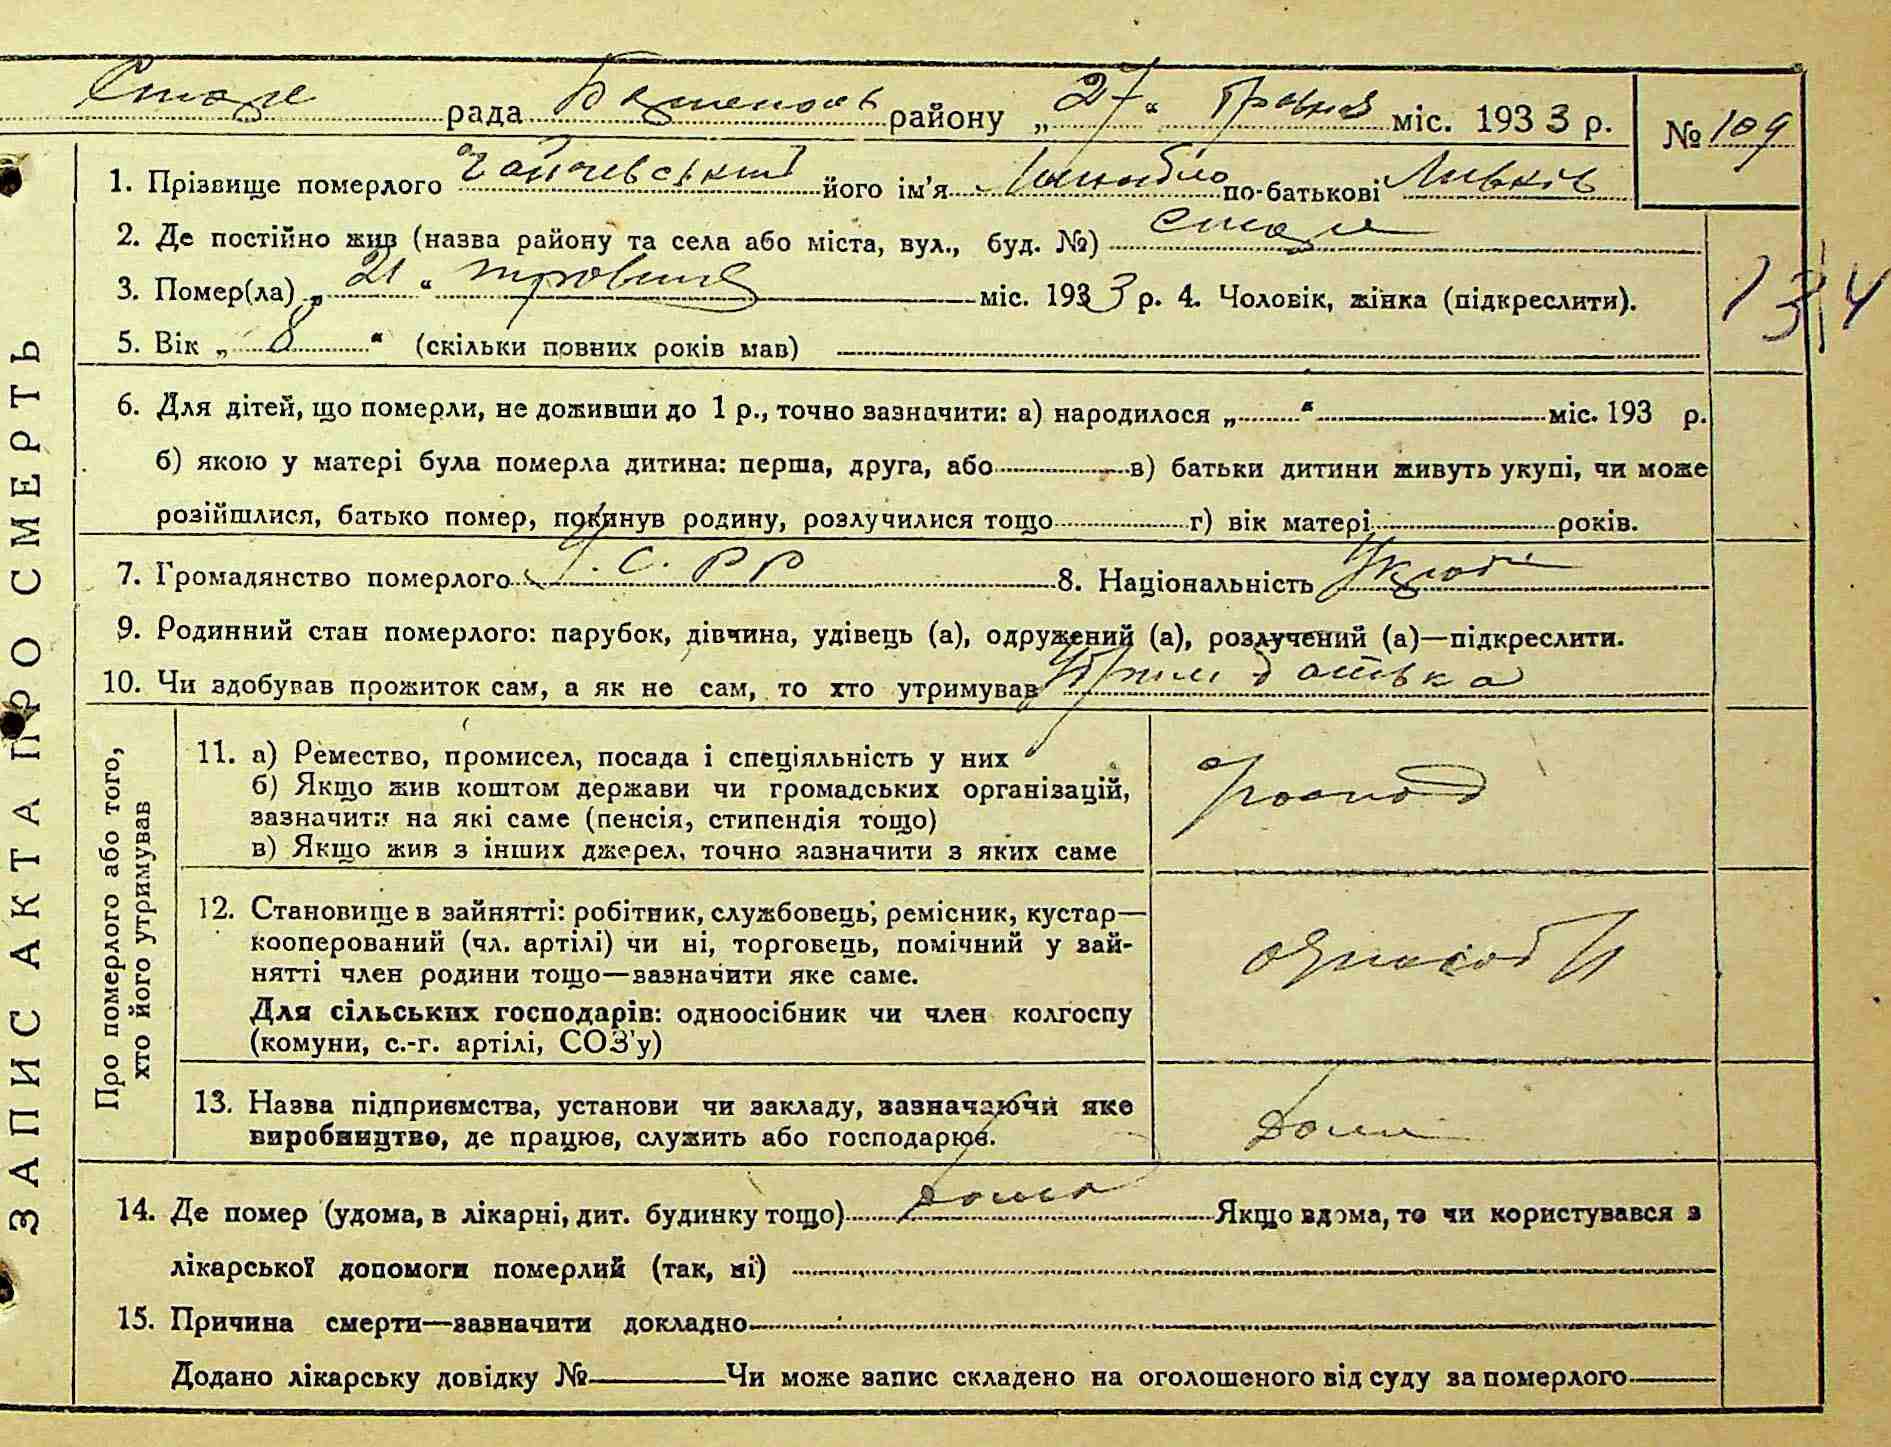 Старе рада району „27“ травня міс. 1933 р. № 109
1. Прізвище померлого його ім'я по-батькові
2. Де постійно жив (назва району та села або міста, вул., буд. №) Старе
3. Помер(ла) „21“ травня міс. 1933 р. 4. Чоловік, жінка (підкреслити).
134
5. Вік „8“ (скільки повних років мав)
6. Для дітей, що померли, не доживши до 1 р., точно зазначити: а) народилося „ “ міс. 193 р.
б) якою у матері була померла дитина: перша, друга, або в) батьки дитини живуть укупі, чи може
розійшлися, батько помер, покинув родину, розлучилися тощо г) вік матері років.
7. Громадянство померлого У.С.РР 8. Національність
9. Родинний стан померлого: парубок, дівчина, удівець (а), одружений (а), розлучений (а)—підкреслити.
10. Чи здобував прожиток сам, а як не сам, то хто утримував батька
ЗАПИС АКТА ПРО СМЕРТЬ
Про померлого або того,
хто його утримував
11. а) Ремество, промисел, посада і спеціяльність у них
б) Якщо жив коштом держави чи громадських організацій,
зазначити на які саме (пенсія, стипендія тощо)
в) Якщо жив з інших джерел, точно зазначити з яких саме
12. Становище в зайнятті: робітник, службовець, ремісник, кустар—
кооперований (чл. артілі) чи ні, торговець, помічний у зай-
нятті член родини тощо—зазначити яке саме.
Для сільських господарів: одноосібник чи член колгоспу
(комуни, с.-г. артілі, СОЗ'у)
13. Назва підприємства, установи чи закладу, зазначаючи яке
виробництво, де працює, служить або господарює.
14. Де помер (удома, в лікарні, дит. будинку тощо) дома Якщо вдома, то чи користувався з
лікарської допомоги померлий (так, ні)
15. Причина смерти—зазначити докладно
Додано лікарську довідку № Чи може запис складено на оголошеного від суду за померлого